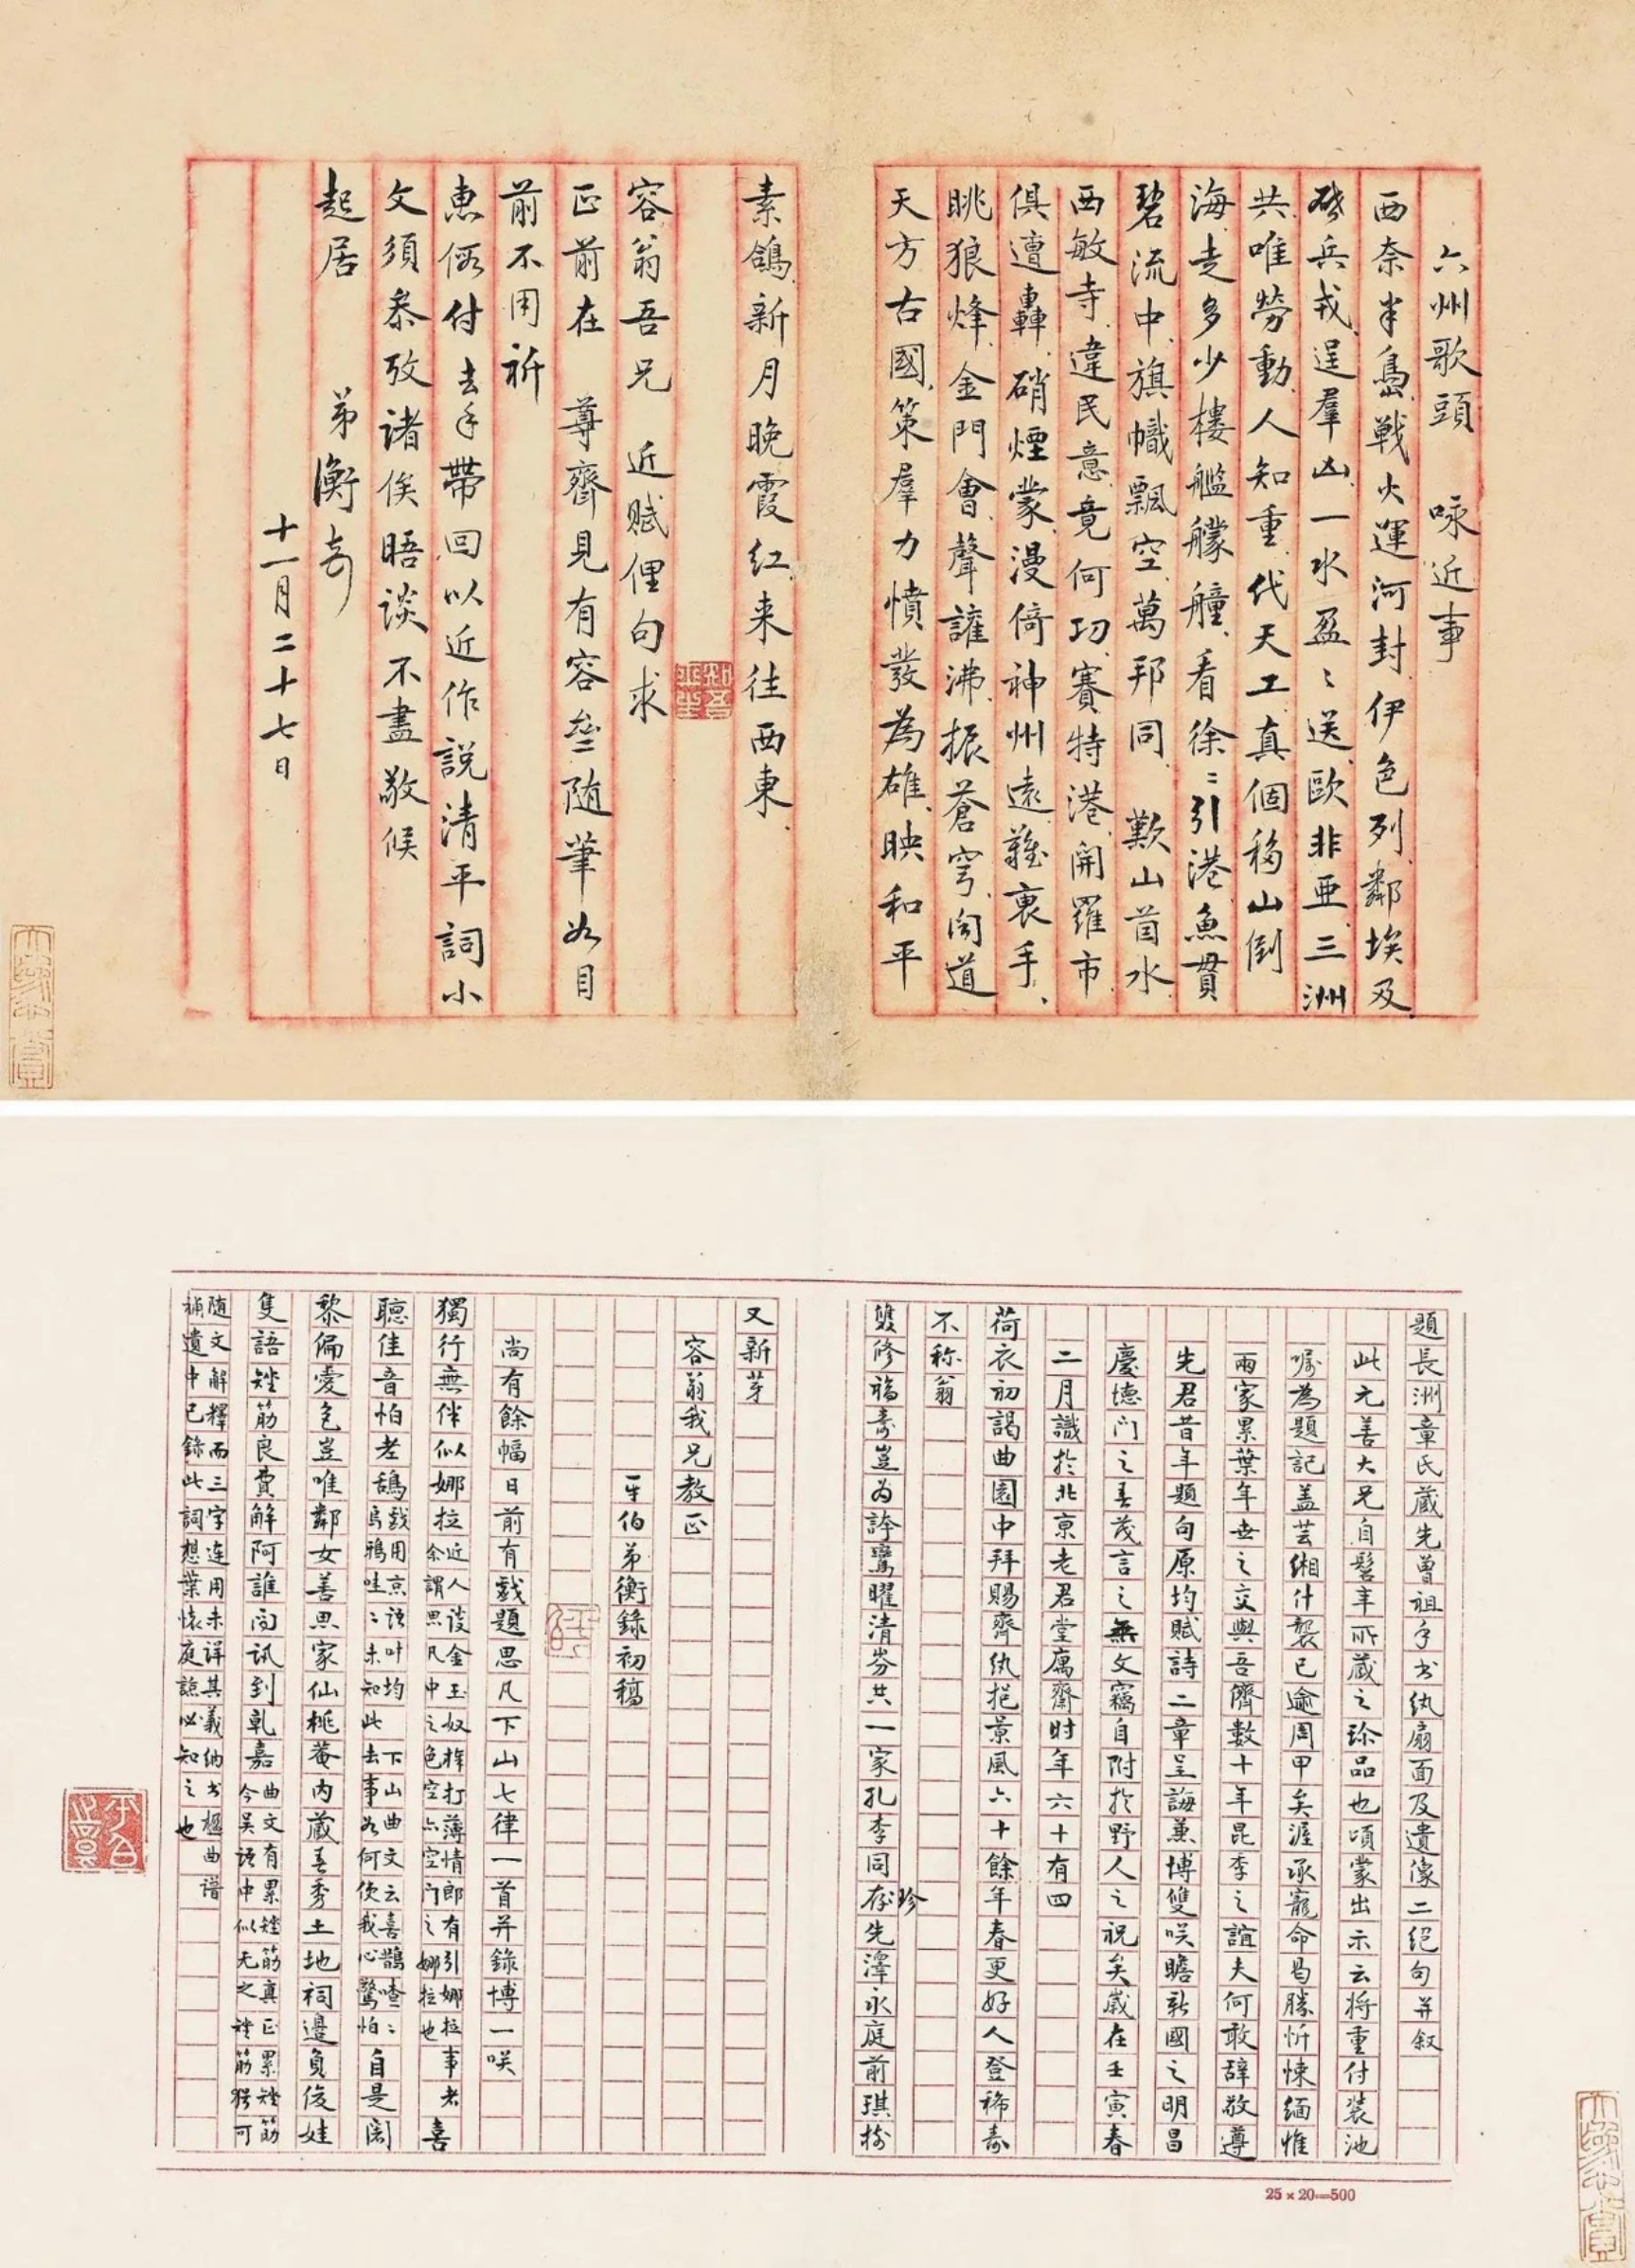 六州歌頭　咏近事
西奈半島戰火運河封伊色列鄰埃及
兵戎逞羣凶一水盈〻送歐非亜三洲
共唯勞動人知重代天工真個移山倒
海走多少樓艦艨艟看徐〻引港魚貫
碧流中旗幟飄空萬邦同　歎山茵水
西敏寺違民意竟何功賽特港開羅市
俱遭轟硝煙蒙漫倚神州遠難裏手
眺狼烽金門會聲讙沸振蒼穹闻道
天方古國策羣力憤發為雄映和平
素鴿新月晚霞红来往西東
容翁吾兄　近賦俚句求
正前在　尊齋見有容壘随筆如目
前不用祈
惠假付去手帶回以近作説清平詞小
文須叅攷諸俟晤談不盡敬候
起居　弟衡奇
十一月二十七日
題長洲章氏藏先曾祖手书纨扇面及遺像二绝句并叙
此元善大兄自髫年所藏之珎品也頃蒙出示云将重付装池
嘱為題記盖芸缃什襲已逾周甲矣渥承寵命曷勝忻悚緬惟
兩家累葉年世之交與吾儕數十年昆季之誼夫何敢辞敬遵
先君昔年題句原均賦詩二章呈誨兼博雙咲瞻新國之明昌
慶徳门之春茂言之無文竊自附於野人之祝矣歲在壬寅春
二月識於北京老君堂寓齋时年六十有四
荷衣初謁曲園中拜賜齊纨挹景風六十餘年春更好人登稀壽
不称翁
雙修福壽豈为誇鸞曜清芬共一家孔李同存先澤永庭前琪樹
珍
又新芽
容翁我兄教正
平伯弟衡錄初稿
尚有餘幅日前有戲題思凡下山七律一首并錄博一咲
獨行無伴似娜拉近人谈金玉奴棒打薄情郎有引娜拉事者
余謂思凡中之色空六空门之娜拉也喜
聽佳音怕老鴰戲用京话叶均下山曲文云喜鵲喳〻
烏鴉哇〻未知此去事如何使我心驚怕自是闍
黎偏愛色豈唯鄰女善思家仙桃菴内藏春秀土地祠邊負俊娃
隻語矬筋良費解阿誰问讯到乾嘉曲文有累矬筋真正累矬筋
今吴语中似无之矬筋猶可
随文解釋而三字連用未详其義纳书楹曲谱
補遺中已錄此詞想葉懷庭諒必知之也
25×20=500